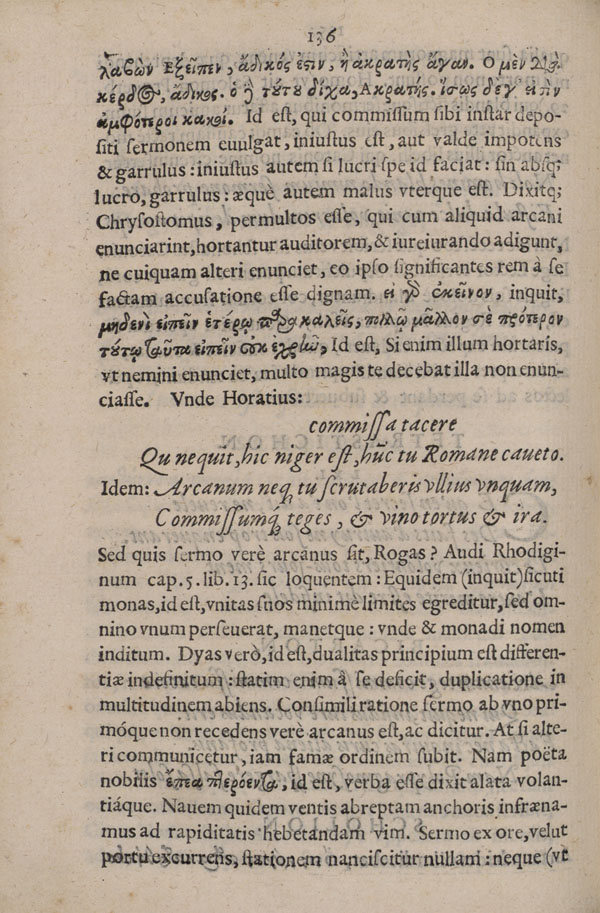 136
λαβὼν Ἐξεῖπεν, ἄδικός ἐστιν, ἢ ἀκρατὴς ἄγαν. Ὁ μὲν διὰ
κέρδος, ἄδικος. ὁ δὲ τούτου δίχα, Ἀκρατής. ἴσως δέ γ' εἰσὶν
ἀμφότεροι κακοί. Id est, qui commissum sibi instar depo-
siti sermonem euulgat, iniustus est, aut valde impotens
& garrulus: iniustus autem si lucri spe id faciat: sin absq;
lucro, garrulus: æquè autem malus vterque est. Dixitq;
Chrysostomus, permultos esse, qui cum aliquid arcani
enunciarint, hortantur auditorem, & iureiurando adigunt,
ne cuiquam alteri enunciet, eo ipso significantes rem à se
factam accusatione esse dignam. εἰ γὸ ἐκεῖνον, inquit,
μηδενὶ εἰπεῖν ἑτέρῳ παρακαλεῖς, πολλῷ μᾶλλον σὲ πρότερον
τούτῳ ταῦτα εἰπεῖν οὐκ ἐχρῆν, Id est, Si enim illum hortaris,
vt nemini enunciet, multo magis te decebat illa non enun-
ciasse. Vnde Horatius:
commissa tacere
Qu nequit, hic niger est, hūc tu Romane caueto.
Idem: Arcanum neq; tu scrutaberis vllius vnquam,
Commissumq́; teges, & vino tortus & ira.
Sed quis sermo verè arcanus sit, Rogas? Audi Rhodigi-
num cap. 5. lib. 13. sic loquentem: Equidem (inquit) sicuti
monas, id est, vnitas suos minimè limites egreditur, sed om-
nino vnum perseuerat, manetque: vnde & monadi nomen
inditum. Dyas verò, id est, dualitas principium est differen-
tiæ indefinitum: statim enim à se deficit, duplicatione in
multitudinem abiens. Consimili ratione sermo ab vno pri-
móque non recedens verè arcanus est, ac dicitur. At si alte-
ri communicetur, iam famæ ordinem subit. Nam poëta
nobilis ἔπεα πτερόεντα, id est, verba esse dixit alata volan-
tiáque. Nauem quidem ventis abreptam anchoris infræna-
mus ad rapiditatis hebetandam vim. Sermo ex ore, velut
portu excurrens, stationem nanciscitur nullam: neque (vt